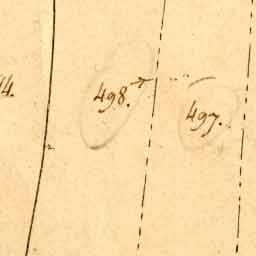 498.
497.